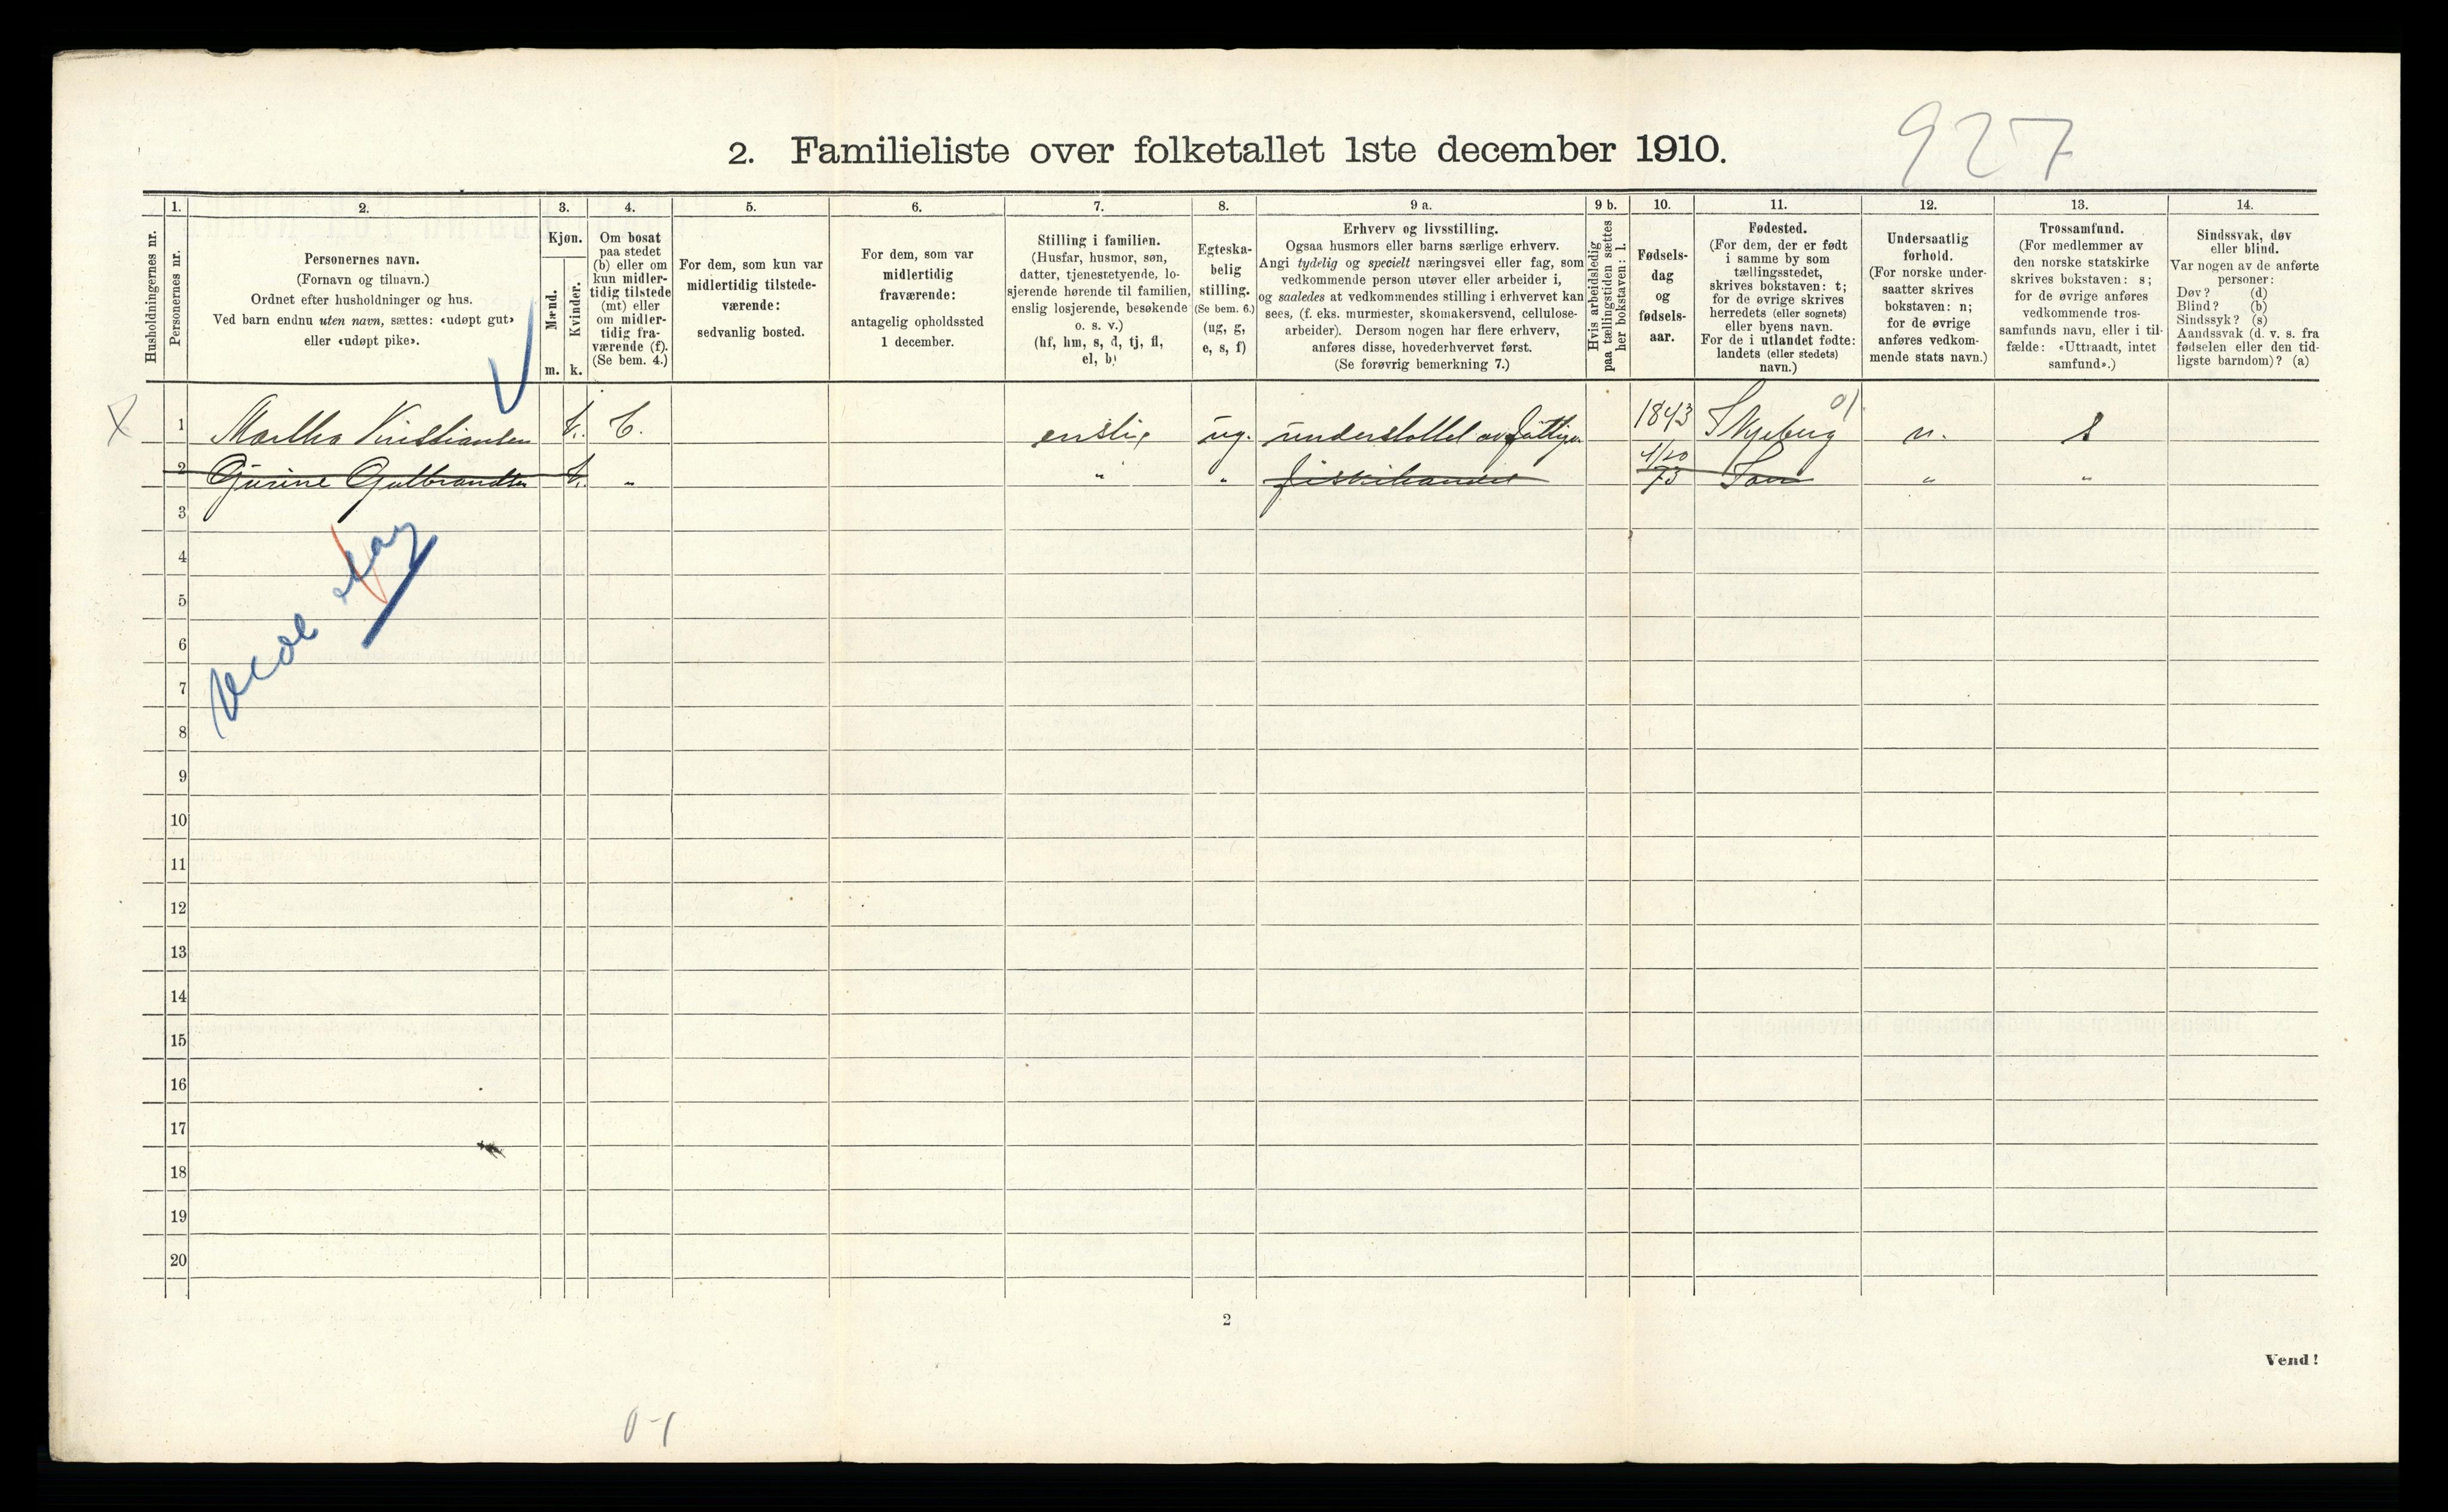 927
2. Familieliste over folketallet 1ste december 1910.
Husholdningernes nr.
1.
Personernes nr.
2.
Personernes navn.
(Fornavn og tilnavn.)
Ordnet efter husholdninger og hus.
Ved barn endnu uten navn, sættes: «udøpt gut»
eller «udøpt pike».
3.
Kjøn.
Mænd.
Kvinder.
m. k.
4.
Om bosat
paa stedet
(b) eller om
kun midler-
tidig tilstede
(mt) eller
om midler-
tidig fra-
værende (f).
(Se bem. 4.)
5.
For dem, som kun var
midlertidig tilstede-
værende:
sedvanlig bosted.
6.
For dem, som var
midlertidig
fraværende:
antagelig opholdssted
1 december.
7.
Stilling i familien.
(Husfar, husmor, søn,
datter, tjenestetyende, lo-
sjerende hørende til familien,
enslig losjerende, besøkende
o. s. v.)
(hf, hm, s, d, tj, fl,
el, b)
8.
Egteska-
belig
stilling.
(Se bem. 6.)
(ug, g,
e, s, f)
9 a.
Erhverv og livsstilling.
Ogsaa husmors eller barns særlige erhverv.
Angi tydelig og specielt næringsvei eller fag, som
vedkommende person utøver eller arbeider i,
og saaledes at vedkommendes stilling i erhvervet kan
sees, (f. eks. murmester, skomakersvend, cellulose-
arbeider). Dersom nogen har flere erhverv,
anføres disse, hovederhvervet først.
(Se forøvrig bemerkning 7.)
9 b.
Hvis arbeidsledig
paa tællingstiden sættes
her bokstaven: l.
10.
Fødsels-
dag
og
fødsels-
aar.
11.
Fødested.
(For dem, der er født
i samme by som
tællingsstedet,
skrives bokstaven: t;
for de øvrige skrives
herredets (eller sognets)
eller byens navn.
For de i utlandet fødte:
landets (eller stedets)
navn.)
12.
Undersaatlig
forhold.
(For norske under-
saatter skrives
bokstaven: n;
for de øvrige
anføres vedkom-
mende stats navn.)
13.
Trossamfund.
(For medlemmer av
den norske statskirke
skrives bokstaven: s;
for de øvrige anføres
vedkommende tros-
samfunds navn, eller i til-
fælde: «Uttraadt, intet
samfund».)
14.
Sindssvak, døv
eller blind.
Var nogen av de anførte
personer:
Døv? (d)
Blind? (b)
Sindssyk? (s)
Aandssvak (d. v. s. fra
fødselen eller den tid-
ligste barndom)? (a)
X 1 Martha Kristiansen k. b. enslig ug. understottet av fattigv 1843 Skjeberg 01 n. s
2 Gurine Gulbrandsen k. " " " fiskehandel 4/10 73 Son " "
3
4
5
6
7
8
9
10
11
12
13
14
15
16
17
18
19
20
2
Vend!
0-1